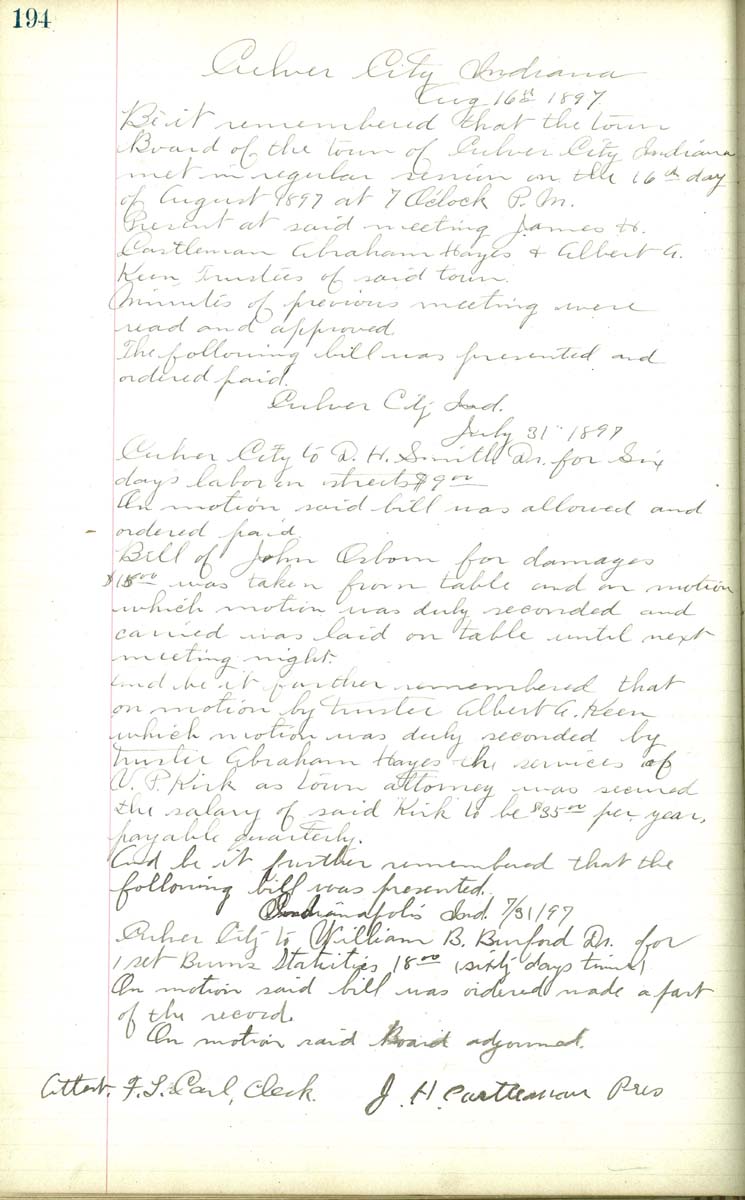 194
Culver City Indiana
Aug 16th 1897
Be it remembered that the town
Board of the town of Culver City Indiana
met in regular session on the 16th day
of August 1897 at 7 Oclock P.M.
Present at said meeting James H.
Castleman Abraham Hayes & Albert A.
Keen Trustees of said town.
Minutes of previous meeting were
read and approved
The following bill was presented and
ordered paid.
Culver City Ind.
July 31" 1897
Culver City to D. H. Smith Dr. for Six
days labor on streets $9 00
On motion said bill was allowed and
ordered paid
Bill of John Osborn for damages
was taken from table and on motion
which motion was duly seconded and
carried was laid on table until next
meeting night.
And be it further remembered that
on motion by trustee Albert A. Keen
which motion was duly seconded by
trustee Abraham Hayes the services of
V. P. Kirk as town attorney was secured
the salary of said Kirk to be $35 00 per year,
payable quarterly.
And be it further remembered that the
following bill was presented.
Indianapolis Ind. 7/31/97
Culver City to William B. Burford Dr. for
1 set Burns Statuties 18 00 (sixty days time)
On motion said bill was ordered made a part
of the record.
On motion said Board adjourned.
Attest. F. L. Carl, Clerk. J. H. Castleman Pres